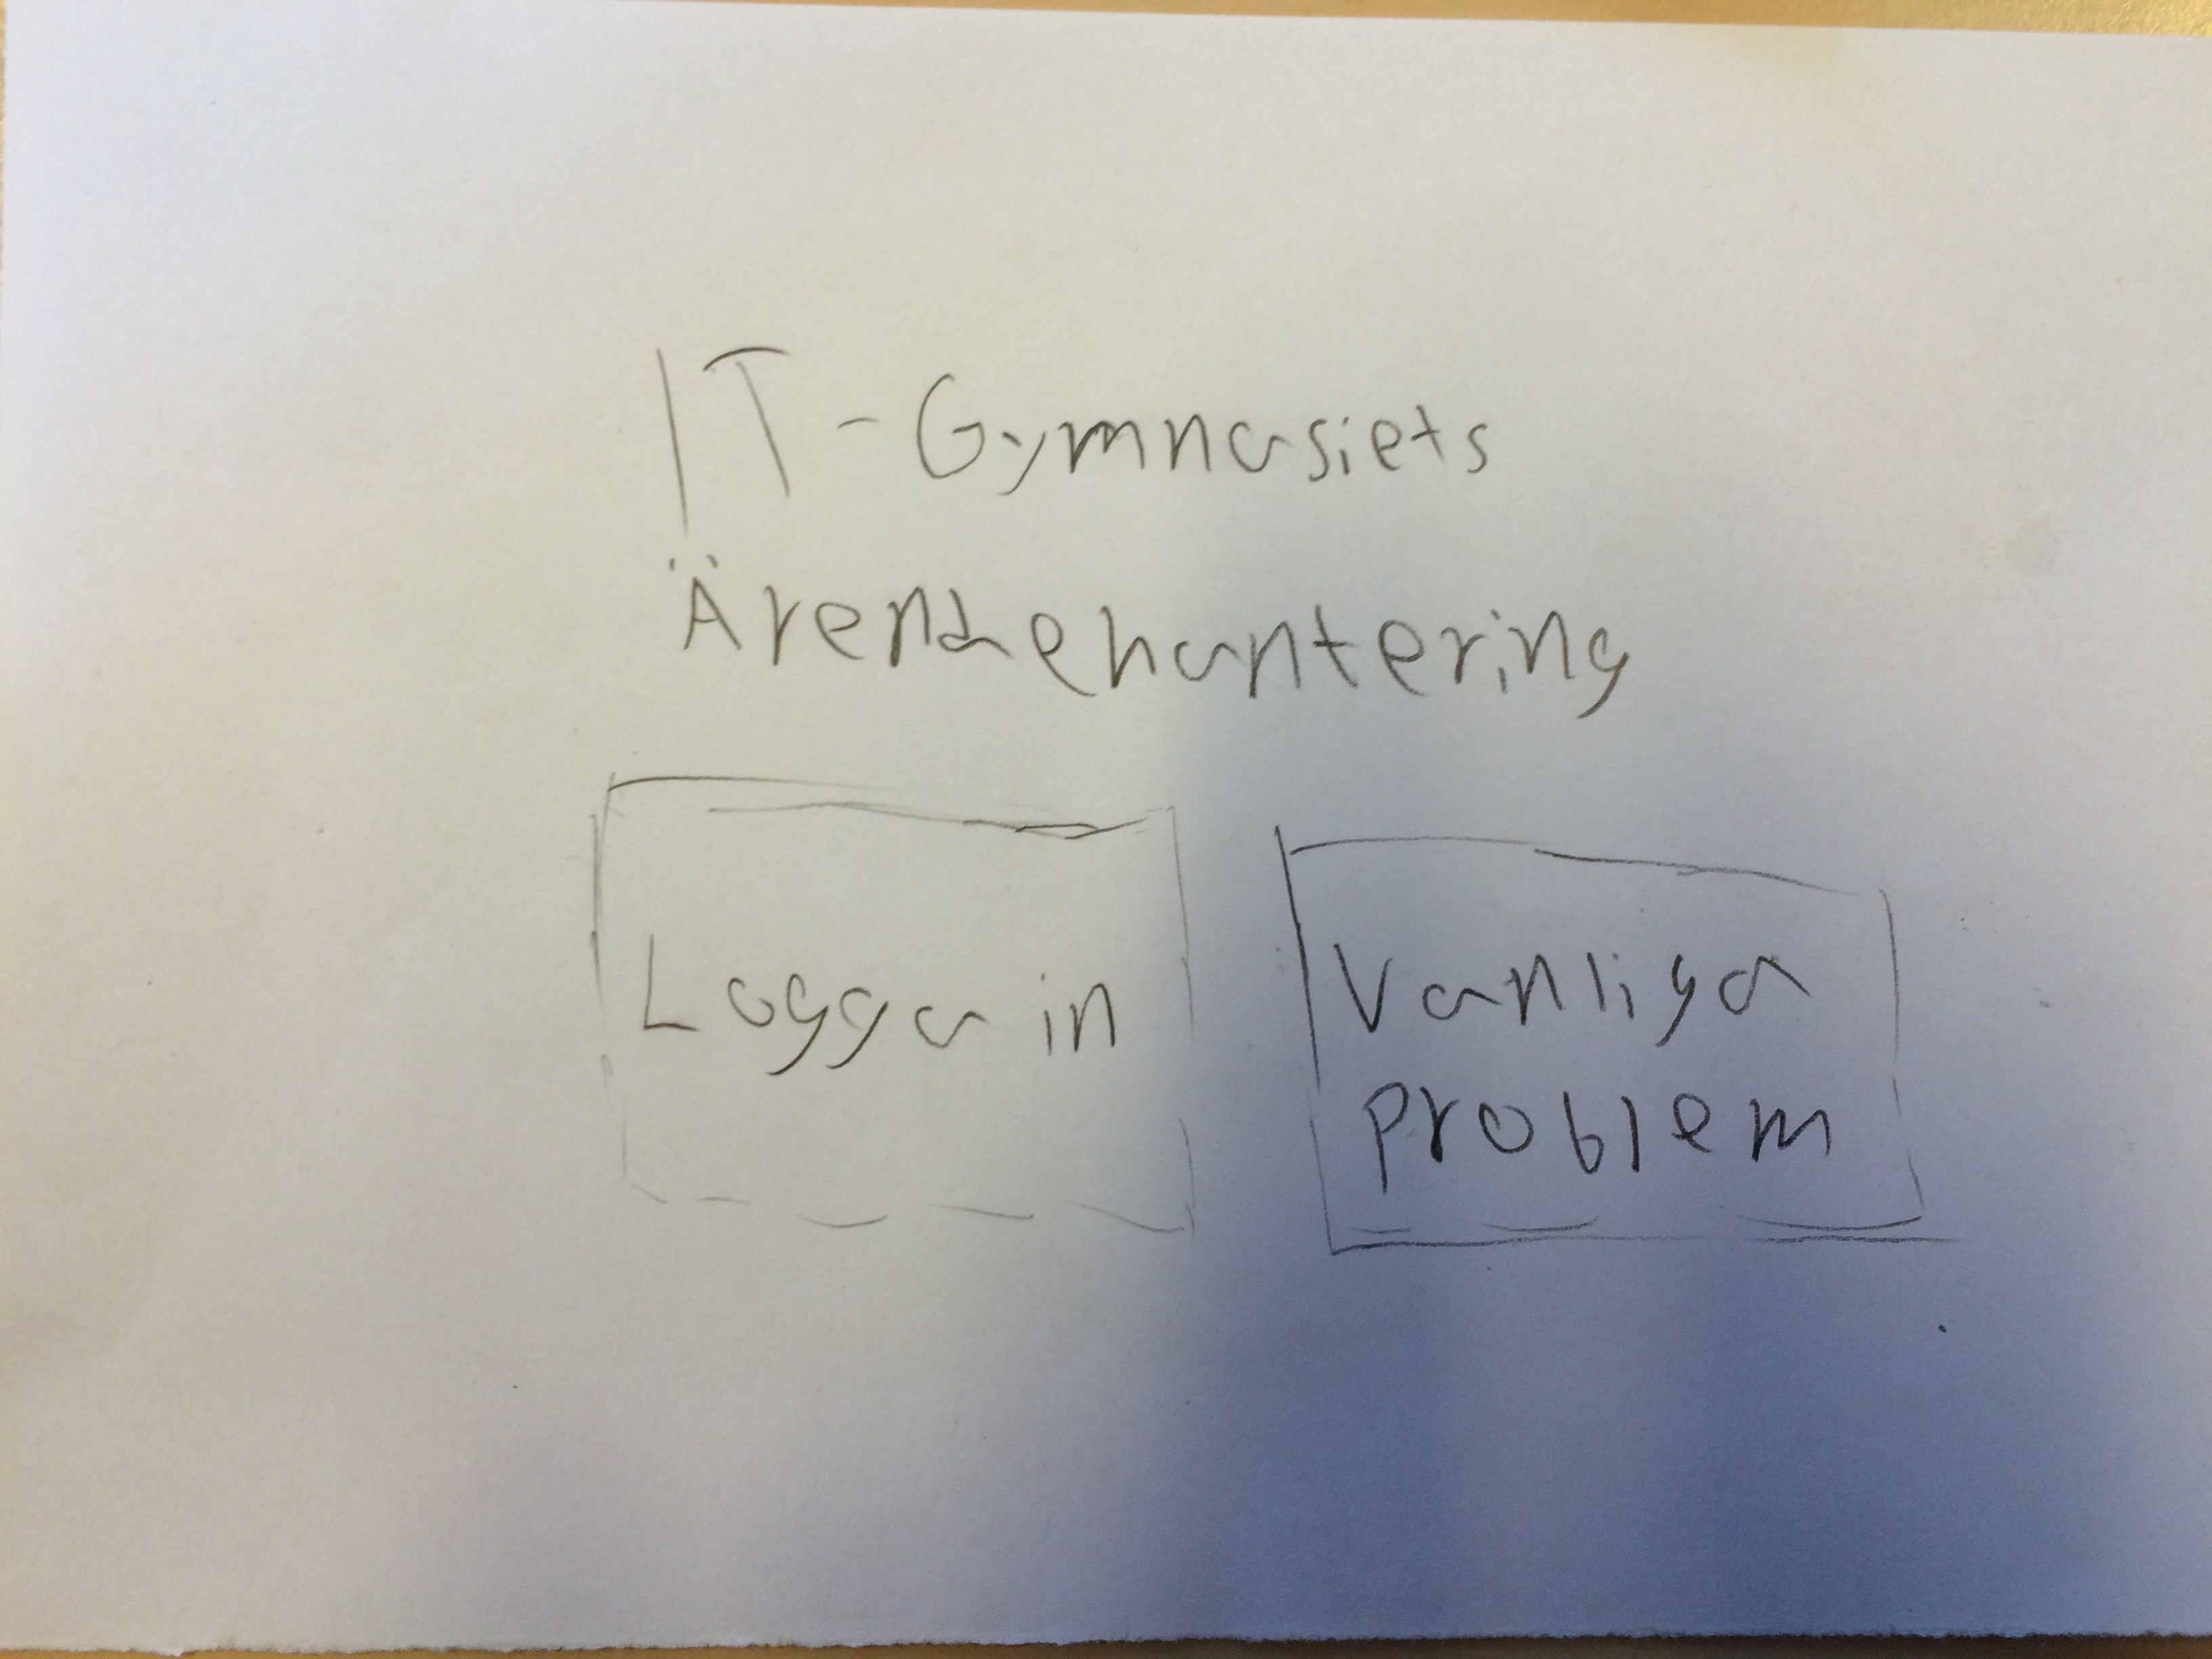 IT-Gymnasiets
Ärendehantering
Logga in
Vanliga
problem